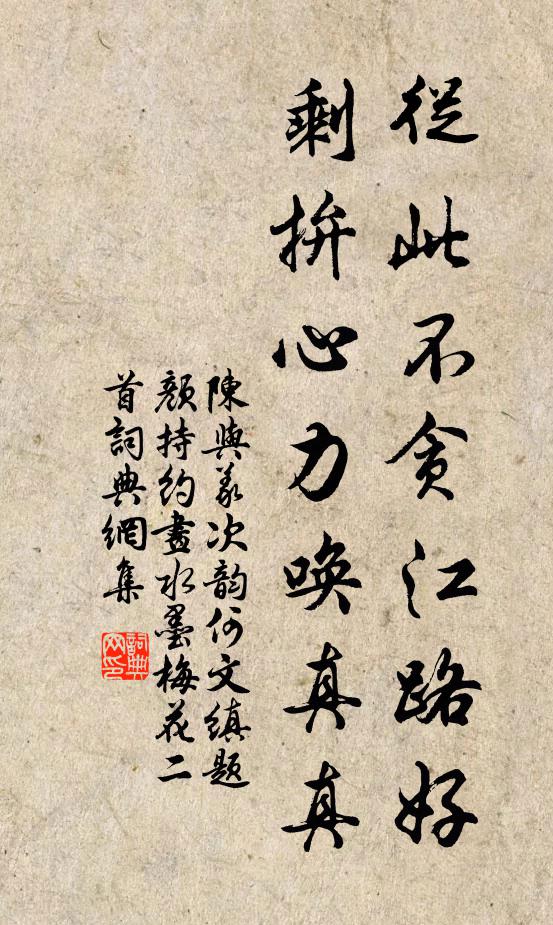 從此不贪江路好
剩拚心力唤真真
陳與義次韵何文縝题
顏持約畫水墨梅花二
首詞典網集
詞典网印